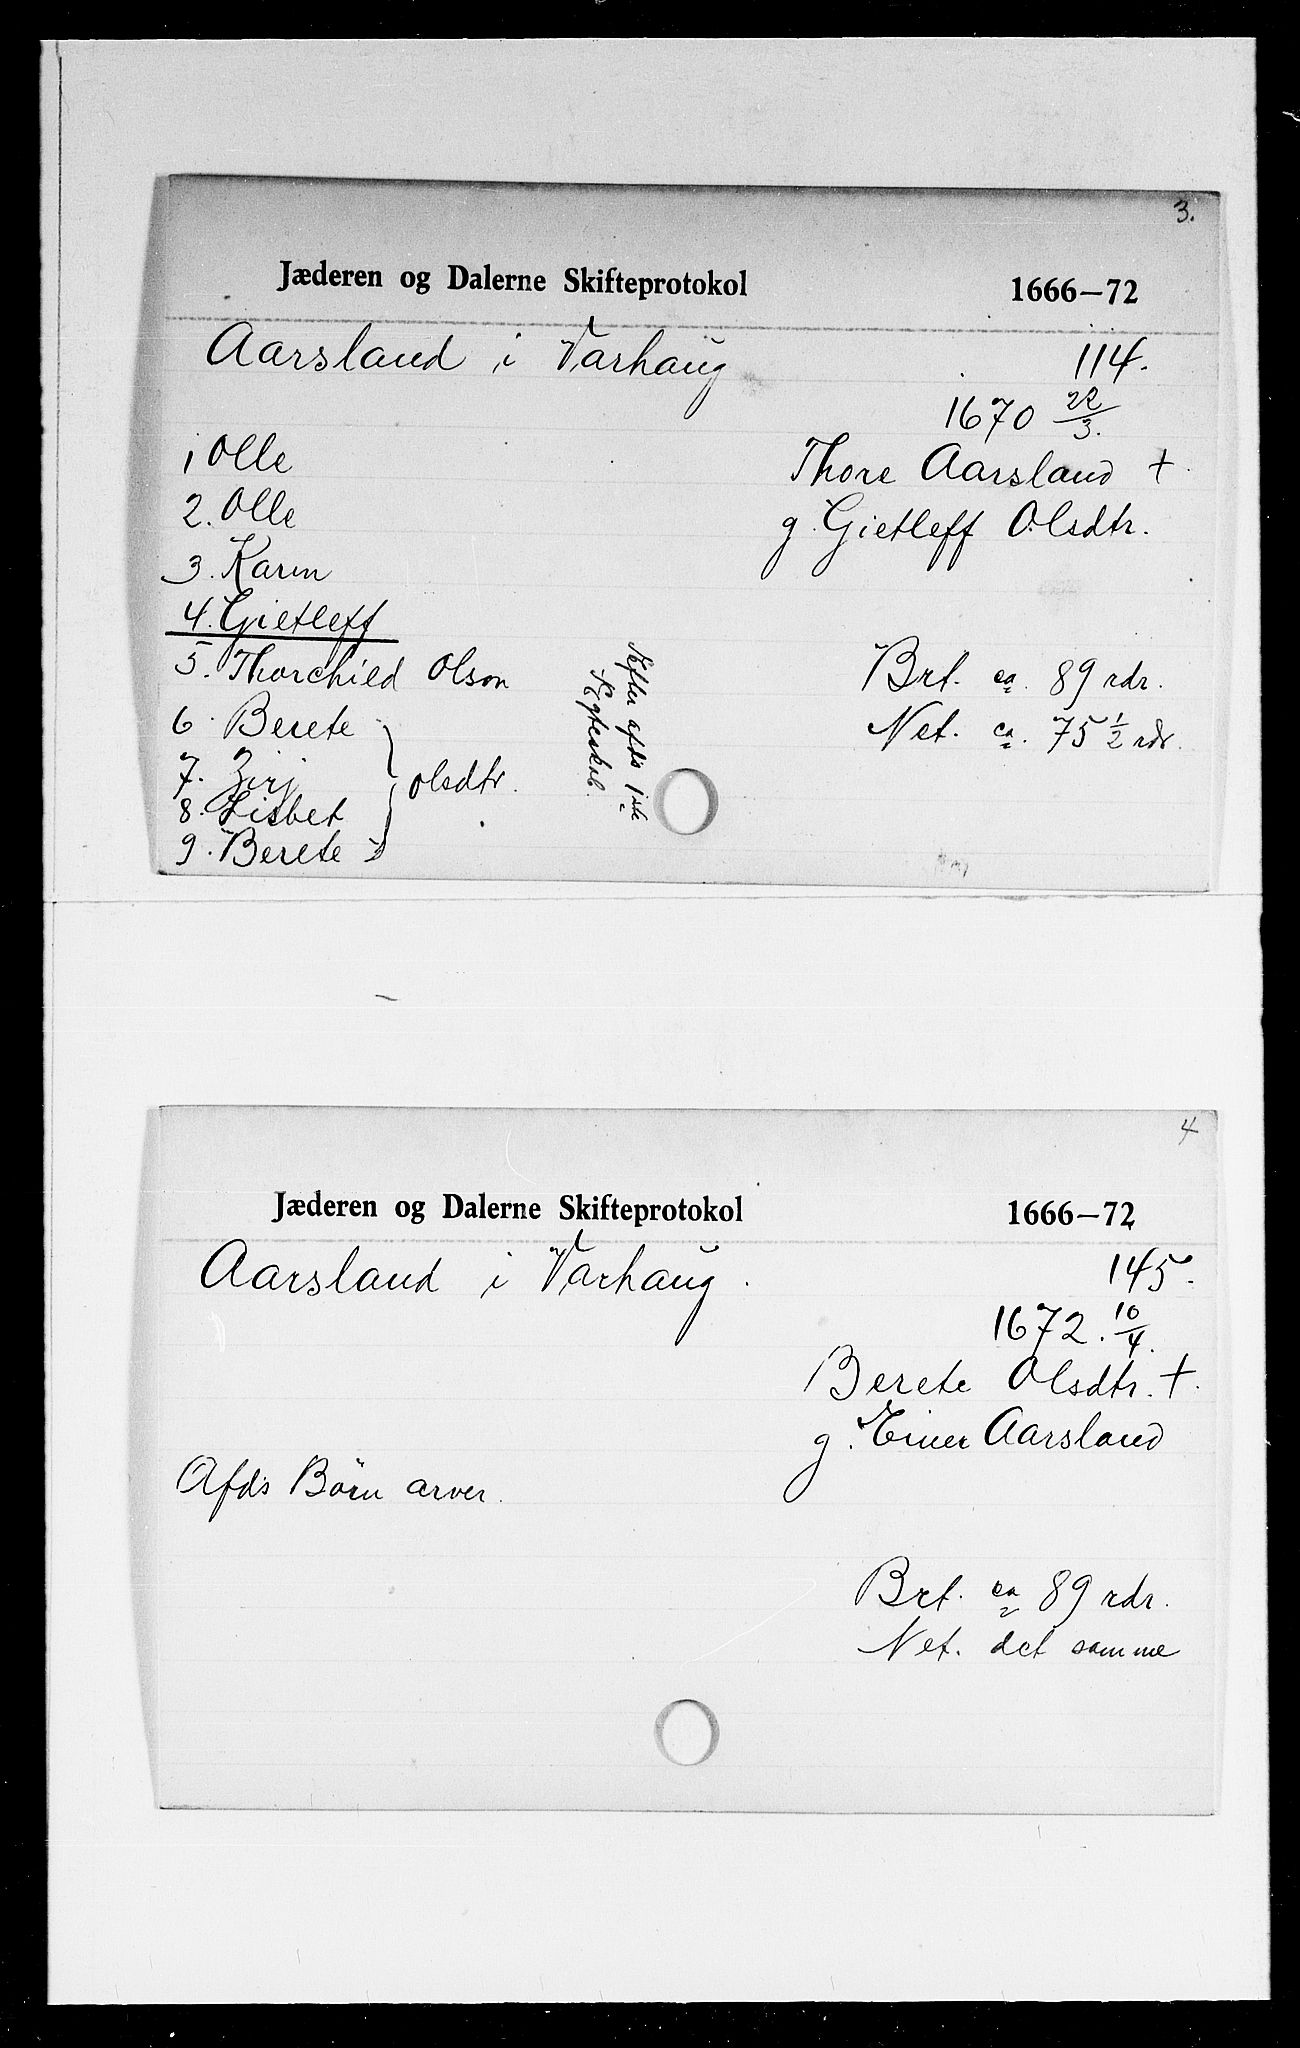 3.
Jæderen og Dalerne Skifteprotokol 1666–72
Aarsland i Varhaug 114.
1670 22/3.
1 Olle Thore Aarsland †
2. Olle g. Gietleff Olsdtr.
3. Karen
4. Gietleff
5. Thorchield Olson Brt. ca. 89 rdr.
6. Berete Net. ca. 75 1/2 rdr.
7. Zirj
8. Lisbet
9. Berete
olsdtr.
Efter afds 1ste
Ægteskab.
4
Jæderen og Dalerne Skifteprotokol 1666–72
Aarsland i Varhaug. 145.
1672. 10/4.
Berete Olsdtr. †.
g. Einer Aarsland
Afds Børn arver.
Brt. ca 89 rdr.
Net. det samme